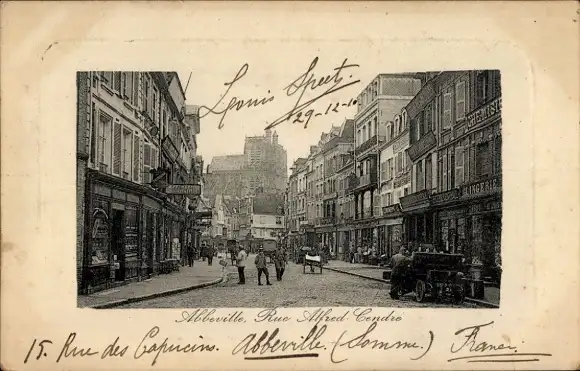 Louis Speet
29-12-10
LINGERIE
Abbeville, Rue Alfred Cendré
15, Rue des Capucins. Abbeville. (Somme) France.